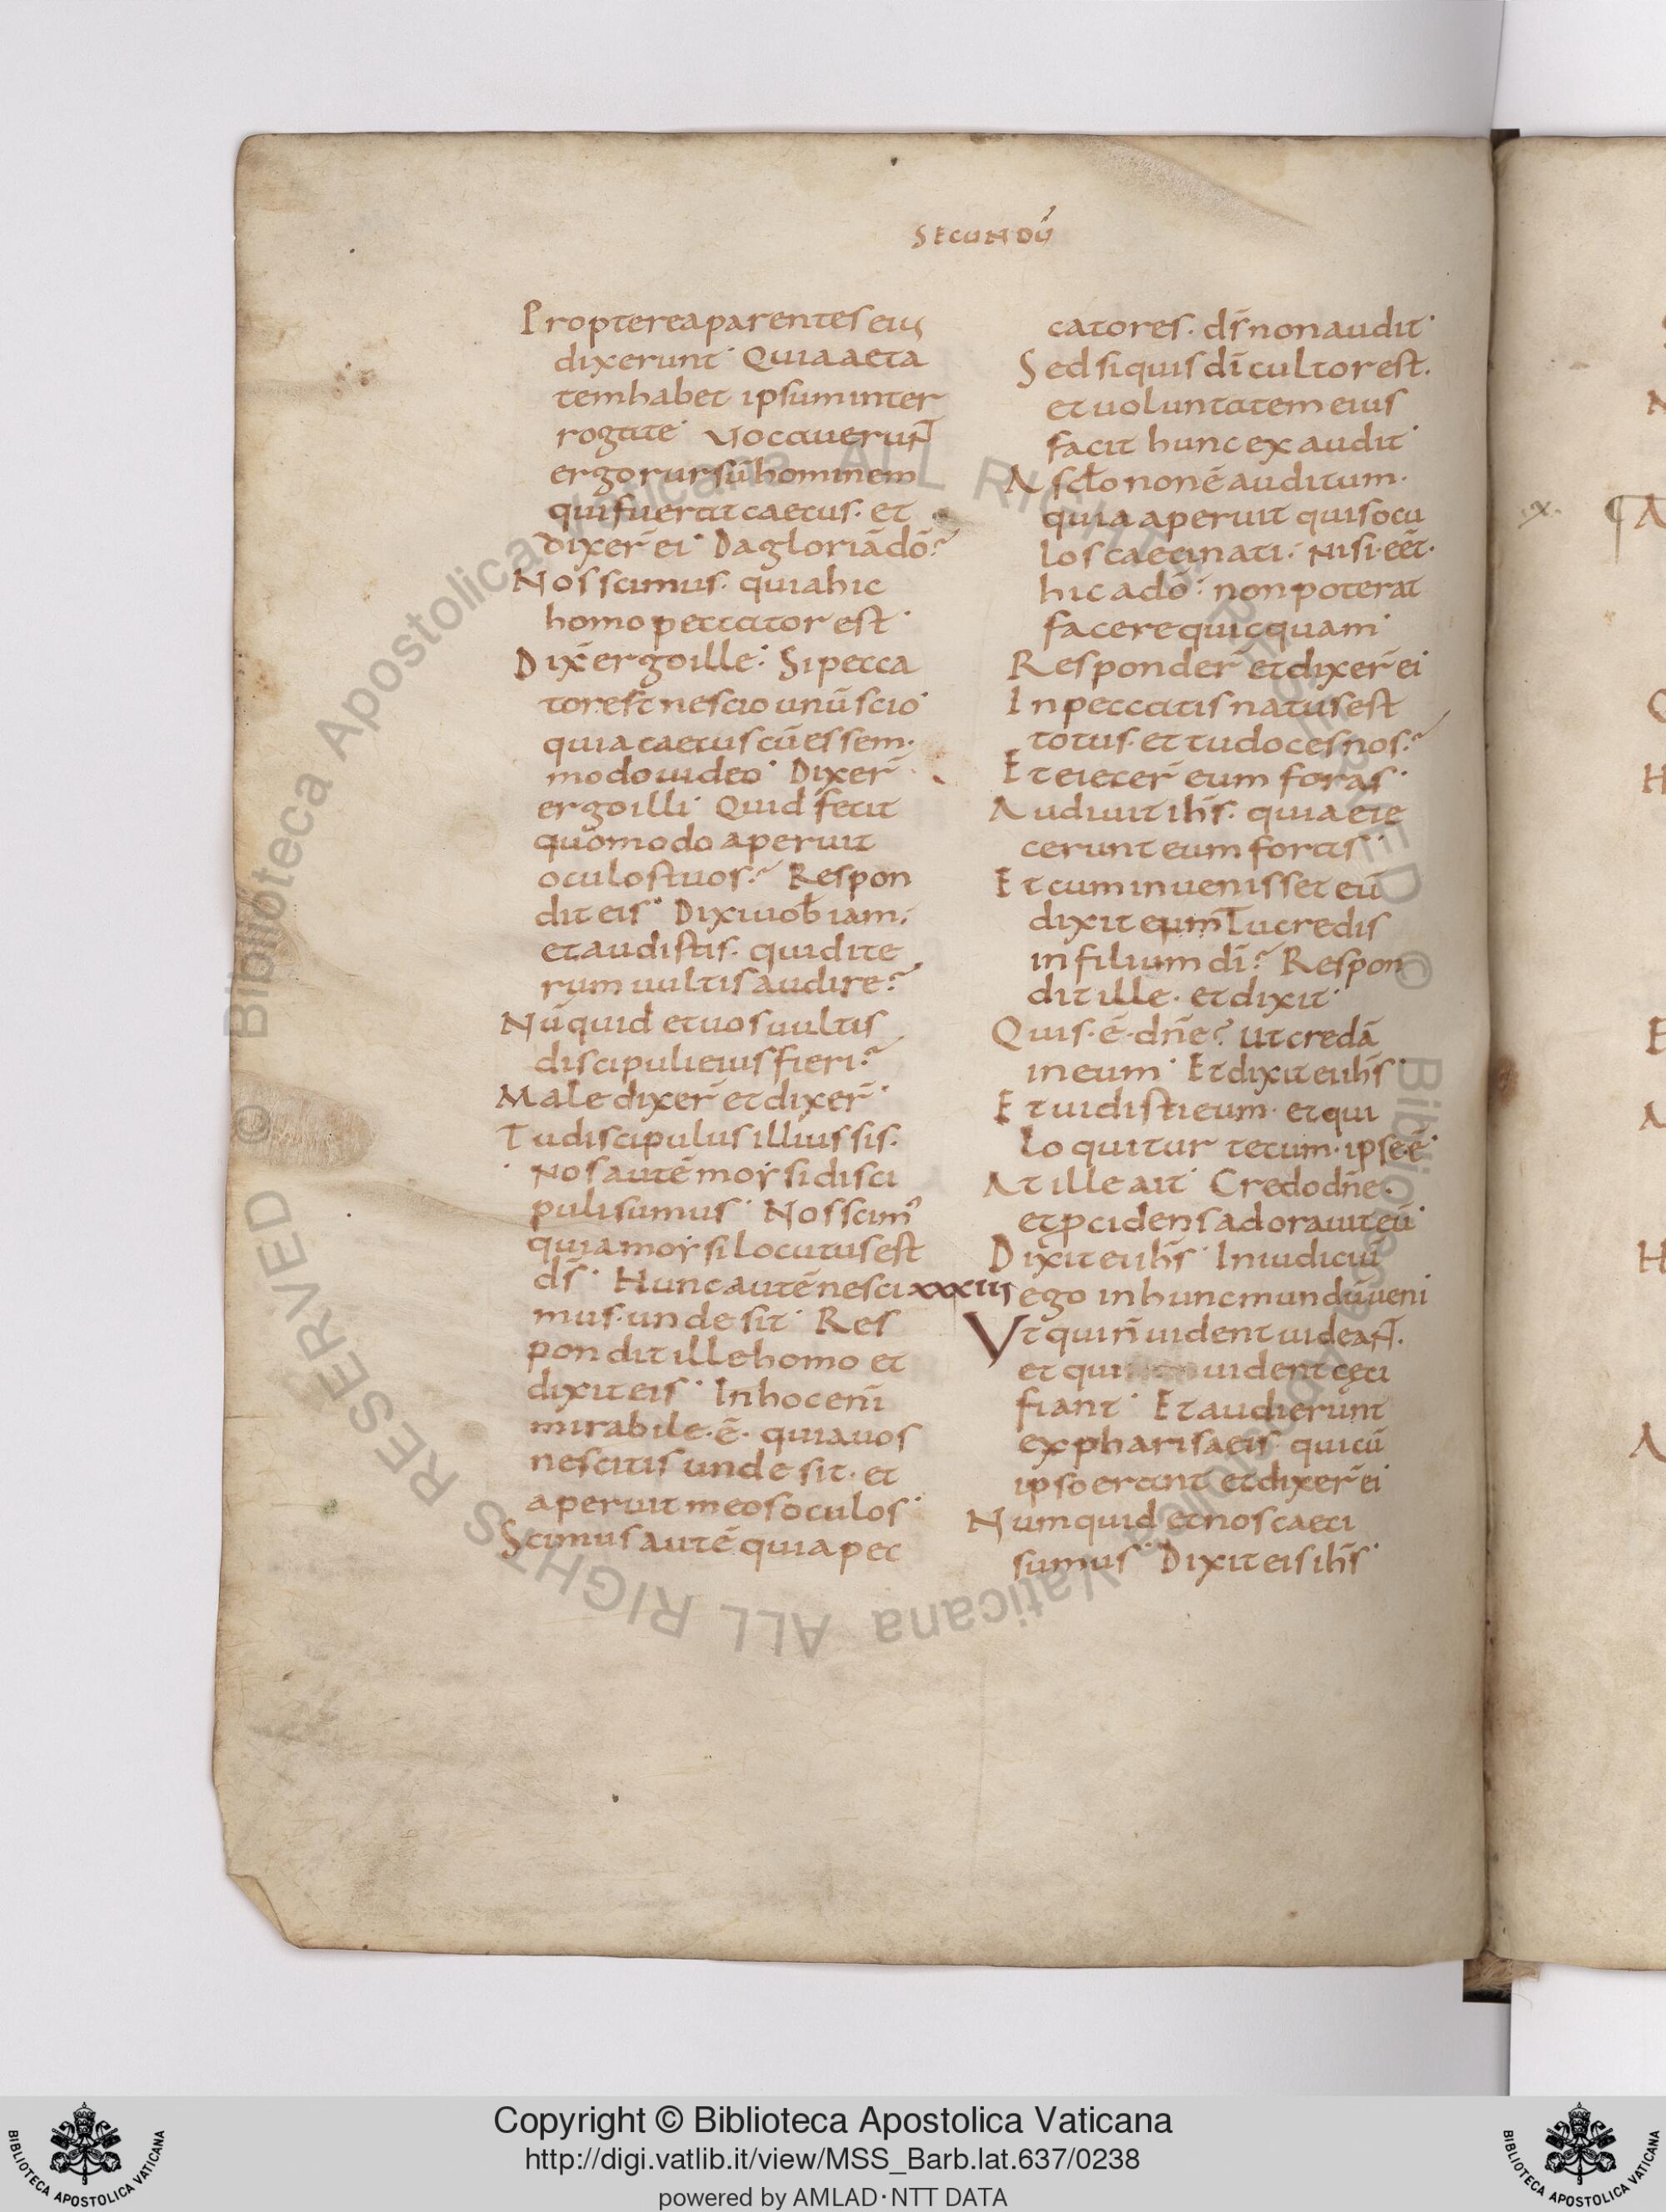 SECUNDŪ
Propterea parentes eius
dixerunt· Quia aeta
tem habet ipsum inter
rogate· Vocauerunt̄
ergo rursū hominem
qui fuerat caecus· et
dixer̄ ei· Da gloriā dō
Nos scimus· quia hic
homo peccator est·
Dix̄ ergo ille· Si pecca
tor est nescio unū scio·
quia caecus cū essem·
modo uideo· Dixer̄
ergo illi· Quid fecit
quomodo aperuit
oculos tuos? Respon
dit eis· Dixi uob̄ iam·
et audistis· quid ite
rum uultis audire?
Nūquid et uos uultis
discipuli eius fieri?
Maledixer̄ et dixer̄·
Tu discipulus illius sis·
Nos autē moysi disci
puli sumus· Nos scim'
quia moysi locutus est
dr̄s· Hunc autē nesci
mus· unde sit· Res
pondit ille homo et
dixit eis· In hoc eni̅
mirabile·ē· quia uos
nescitis unde sit· et
aperuit meos oculos·
Scimus autē quia pec
catores· ds̄ non audit·
Sed si quis dī cultor est·
et uoluntatem eius
facit hunc exaudit·
A sclo non ē auditum·
quia aperuit quis ocu
los caeci nati· Nisi·eēt·
hic a dō· non poterat
facere quicquam·
Responder̄ et dixer̄ ei
In peccatis natus est
totus· et tu doces nos?
Et eiecer̄ eum foras·
Audiuit ih̄s· quia eie
cerunt eum foras·
Et cum inuenisset eū
dixit eum Tu credis
in filium dī? Respon
dit ille· et dixit·
Quis·ē·dn̄e? ut credā
in eum· Et dixit ei ih̄s·
Et uidisti eum· et qui
loquitur tecum· ipse ē·
At ille ait· Credo dn̄e·
et p̱cidens adorauit eū·
Dixit ei ih̄s· In iudiciū
xxxiii ego in hunc mundū ueni
Vt qui n̄ uident uideant̄·
et qui uident cęci
fiant· Et audierunt
ex pharisaeis· qui cū
ipso erant et dixer̄ ei·
Numquid et nos caeci
sumus· Dixit eis ih̄s·
·ix·
Copyright © Biblioteca Apostolica Vaticana
http://digi.vatlib.it/view/MSS_Barb.lat.637/0238
powered by AMLAD·NTT DATA
BIBLIOTECA APOSTOLICA VATICANA
BIBLIOTECA APOSTOLICA VATICANA
© Biblioteca Apostolica Vaticana ALL RIGHTS RESERVED
© Biblioteca Apostolica Vaticana ALL RIGHTS RESERVED